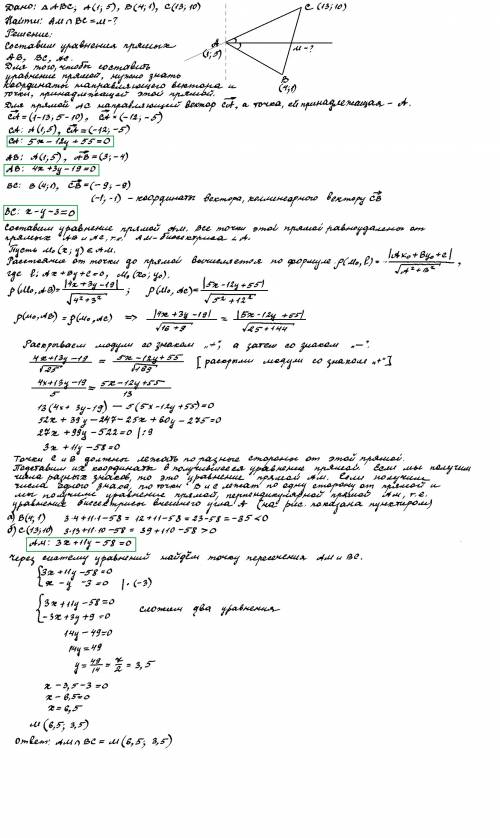 Дано: △ABC, A(1; 5), B(4; 1), C(13; 10)
Найти: AM ∩ BC = M - ?
Решение:
Составим уравнения прямых
AB, BC, AC.
Для того, чтобы составить
уравнение прямой, нужно знать
координаты направляющего вектора и
точки, принадлежащей этой прямой.
C (13; 10)
A
(1; 5)
M - ?
B
(4; 1)
Для прямой AC направляющий вектор CA, а точка, ей принадлежащая - A.
CA = (1-13; 5-10), CA = (-12; -5)
CA: A(1; 5), CA = (-12; -5)
CA: 5x - 12y + 55 = 0
AB: A(1; 5), AB = (3; -4)
AB: 4x + 3y - 19 = 0
BC: B(4; 1), CB = (-9; -9)
(-1; -1) - координаты вектора, коллинеарного вектору CB
BC: x - y - 3 = 0
Составим уравнение прямой AM. Все точки этой прямой равноудалены от
прямых AB и AC, т.к. AM - биссектриса ∠A.
Пусть M₀(x; y) ∈ AM.
Расстояние от точки до прямой вычисляется по формуле ρ(M₀, l) = |Ax₀ + By₀ + C| / √(A² + B²),
где l: Ax + By + C = 0, M₀(x₀; y₀).
ρ(M₀, AB) = |4x + 3y - 19| / √(4² + 3²); ρ(M₀, AC) = |5x - 12y + 55| / √(5² + 12²)
ρ(M₀, AB) = ρ(M₀, AC) => |4x + 3y - 19| / √(16 + 9) = |5x - 12y + 55| / √(25 + 144)
Раскрываем модули со знаком „+", а затем со знаком „-".
(4x + 3y - 19) / √25 = (5x - 12y + 55) / √169 [раскрыли модули со знаком "+"]
(4x + 3y - 19) / 5 = (5x - 12y + 55) / 13
13(4x + 3y - 19) - 5(5x - 12y + 55) = 0
52x + 39y - 247 - 25x + 60y - 275 = 0
27x + 99y - 522 = 0 | : 9
3x + 11y - 58 = 0
Точки C и B должны лежать по разные стороны от этой прямой.
Подставим их координаты в получившееся уравнение прямой. Если мы получим
числа разных знаков, то это уравнение прямой AM. Если получим
числа одного знака, то точки B и C лежат по одну сторону от прямой и
мы получили уравнение прямой, перпендикулярной прямой AM, т.е.
уравнение биссектрисы внешнего угла A (на рис. показана пунктиром)
а) B(4; 1) 3·4 + 11·1 - 58 = 12 + 11 - 58 = 23 - 58 = -35 < 0
б) C(13; 10) 3·13 + 11·10 - 58 = 39 + 110 - 58 > 0
AM: 3x + 11y - 58 = 0
Через систему уравнений найдём точку пересечения AM и BC.
{3x + 11y - 58 = 0
x - y - 3 = 0 | ·(-3)
{3x + 11y - 58 = 0
-3x + 3y + 9 = 0 сложим два уравнения
14y - 49 = 0
14y = 49
y = 49/14 = 7/2 = 3,5
x - 3,5 - 3 = 0
x - 6,5 = 0
x = 6,5
M (6,5; 3,5)
Ответ: AM ∩ BC = M (6,5; 3,5)